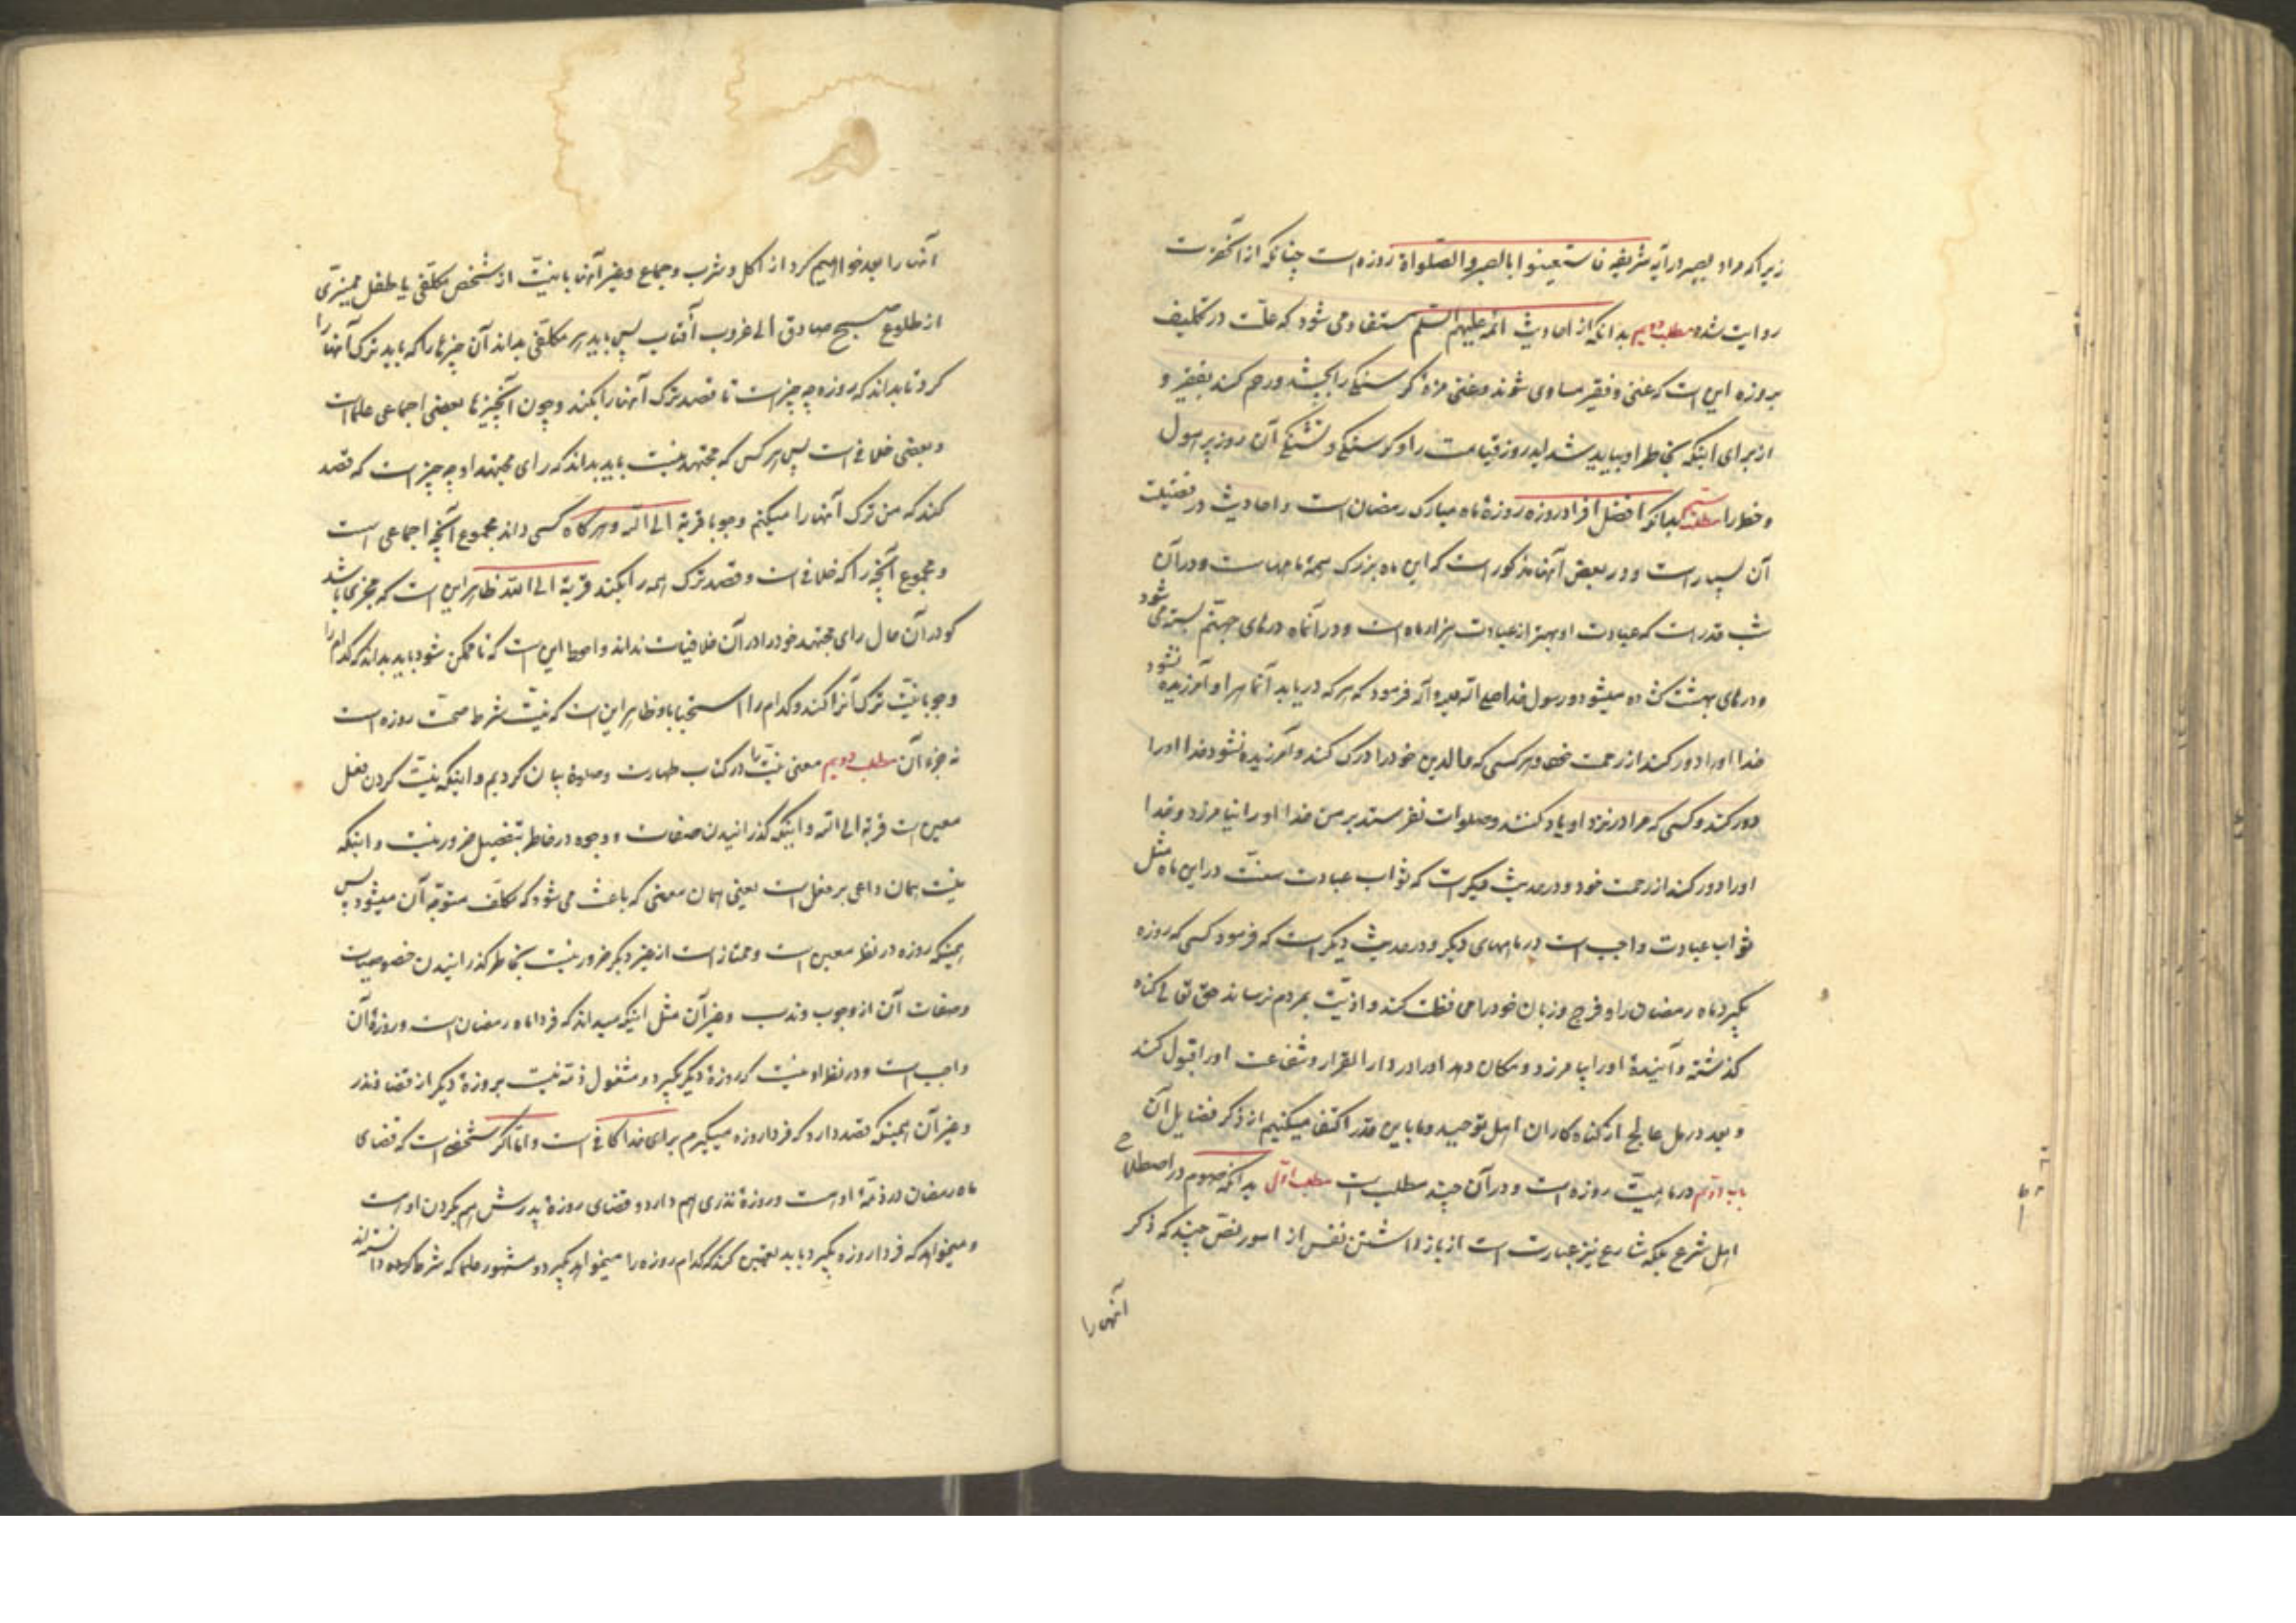 زیرا که مراد بصبر در آیه شریفه فاستعینوا بالصبر و الصلواة روزه است چنانکه از آنحضرت
روایت شده مطلب دویم بدانکه از احادیث ائمه علیهم السلم مستفاد می شود که علت در تکلیف
بروزه این است که غنی و فقیر مساوی شوند و غنی مزه گرسنگی را بچشد و رحم کند بفقیر و
از برای اینکه بخاطر او بیاید شداید روز قیامت را و گرسنگی و تشنگی آن روز پر هول
و خطر را مطلب سیم بدانکه افضل افراد روزه روزهٔ ماه مبارک رمضان است و احادیث در فضیلت
آن بسیار است و در بعض آنها مذکور است که این ماه بزرک همه ماهها است و در آن
شب قدر است که عبادت او بهتر از عبادت هزار ماه است و در آنماه درهای جهنم بسته می شود
و درهای بهشت کشاده میشود و رسول خدا صلی الله علیه و آله فرمود که هر که دریابد آنماه را و آمرزیده نشود
خدا او را دور کند از رحمت خود و هر کسی که والدین خود را درک کند و آمرزیده نشود خدا او را
دور کند و کسی که مرا در نزد او یاد کنند و صلوات نفرستد بر من خدا او را نیامرزد و خدا
او را دور کند از رحمت خود و در حدیث دیگر است که ثواب عبادت سنت در این ماه مثل
ثواب عبادت واجب است در ماههای دیگر و در حدیث دیگر است که فرمود کسی که روزه
بگیرد ماه رمضان را و فرج و زبان خود را محافظت کند و اذیت بمردم نرساند حق تعالی گناه
گذشته و آیندهٔ او را بیامرزد و مکان دهد او را در دار القرار و شفاعت او را قبول کند
و بعدد رمل عالج از گناه کاران اهل توحید و ما باین قدر اکتفا میکنیم از ذکر فضایل آن
باب دویم در ماهیت روزه است و در آن چند مطلب است مطلب اول بدانکه صوم در اصطلاح
اهل شرع بلکه شارع نیز عبارت است از باز داشتن نفس از امور چند که ذکر
آنها را
آنها را بعد خواهیم کرد از اکل و شرب و جماع و غیر آنها با نیت از شخص مکلفی یا طفل ممیزی
از طلوع صبح صادق الی غروب آفتاب پس باید هر مکلفی بداند آن چیزها را که باید ترک آنها را
کرد تا بداند که روزه چه چیز است تا قصد ترک آنها را بکند و چون آنچیزها بعضی اجماعی علما است
و بعضی خلافی است پس هر کس که مجتهد نیست باید بداند که رای مجتهد او چه چیز است که قصد
کند که من ترک آنها را میکنم وجوبا قربة الی الله و هر گاه کسی داند مجموع آنچه اجماعی است
و مجموع آنچه را که خلافی است و قصد ترک همه را بکند قربة الی الله ظاهر این است که مجزی باشد
گو در آن حال رای مجتهد خود را در آن خلافیات نداند و احوط این است که تا ممکن شود باید بداند که کدام را
وجوبا نیت ترک آنرا کند و کدام را استحبابا و ظاهر این است که نیت شرط صحت روزه است
نه جزء آن مطلب دویم معنی نیت را در کتاب طهارت و صلوة بیان کردیم و اینکه نیت کردن فعل
معین است قربة الی الله و اینکه گذرانیدن صفات و وجوه در خاطر بتفصیل ضرور نیست و اینکه
نیت همان داعی بر فعل است یعنی همان معنی که باعث می شود که مکلف متوجه آن میشود پس
همینکه روزه در نظر معین است و ممتاز است از غیر دیگر ضرور نیست بخاطر گذرانیدن خصوصیات
و صفات آن از وجوب و ندب و غیر آن مثل اینکه میداند که فردا ماه رمضان است و روزهٔ آن
واجب است و در نظر او نیست که روزهٔ دیگر بگیرد و مشغول ذمه نیست بروزهٔ دیگر از قضا و نذر
و غیر آن همینکه قصد دارد که فردا روزه میگیرم برای خدا کافی است و اما اگر شخصی است که قضای
ماه رمضان در ذمهٔ او هست و روزهٔ نذری هم دارد و قضای روزهٔ پدرش هم بگردن او است
و میخواهد که فردا روزه بگیرد باید تعیین کند که کدام روزه را میخواهد بگیرد و مشهور علما که شرط کرده دانسته‌اند